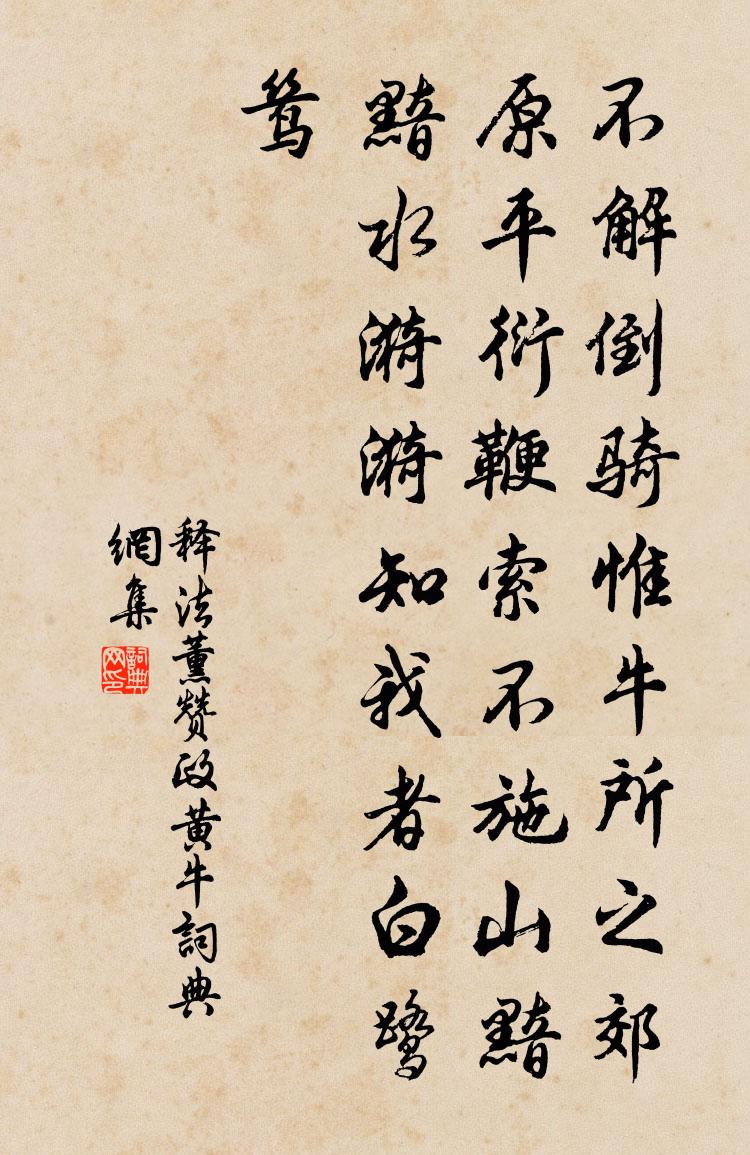 不解倒骑惟牛所之郊
原平衍鞭索不施山黯
黯水漪漪知我者白鹭
鸶
释法薰赞政黄牛詞典
網集
詞典
网印